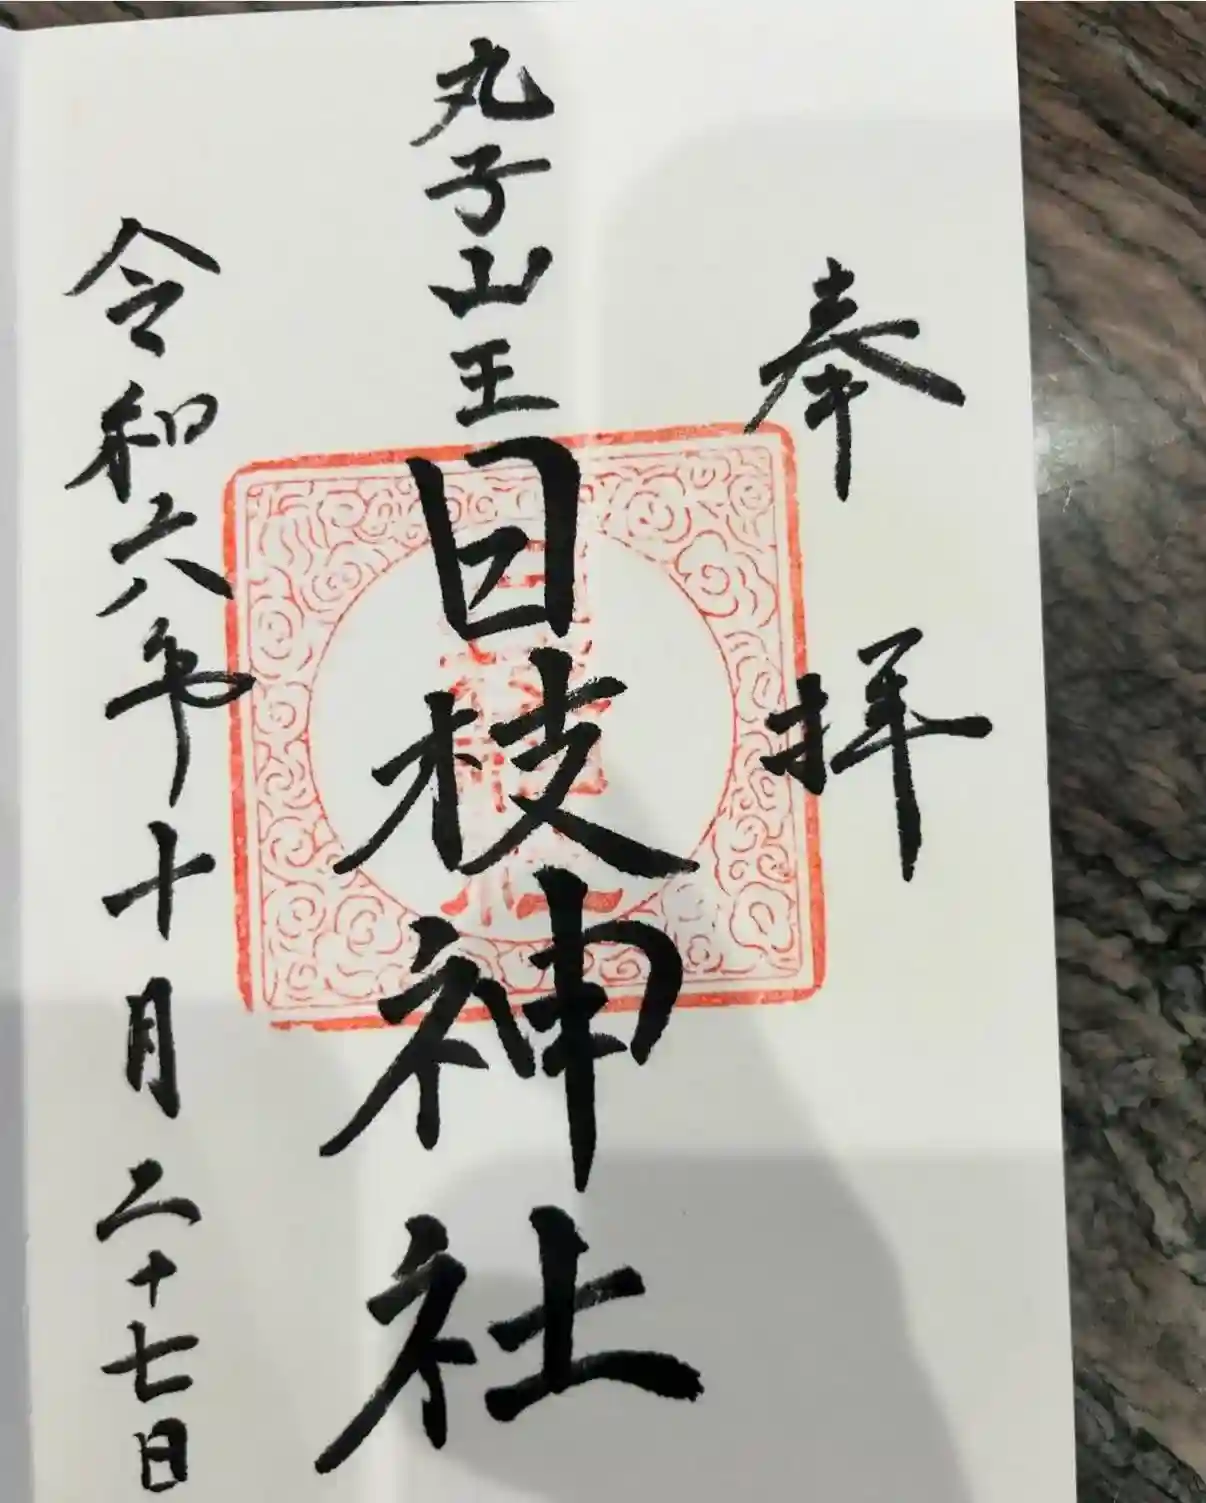 奉拝
丸子山王日枝神社
令和六年十月二十七日